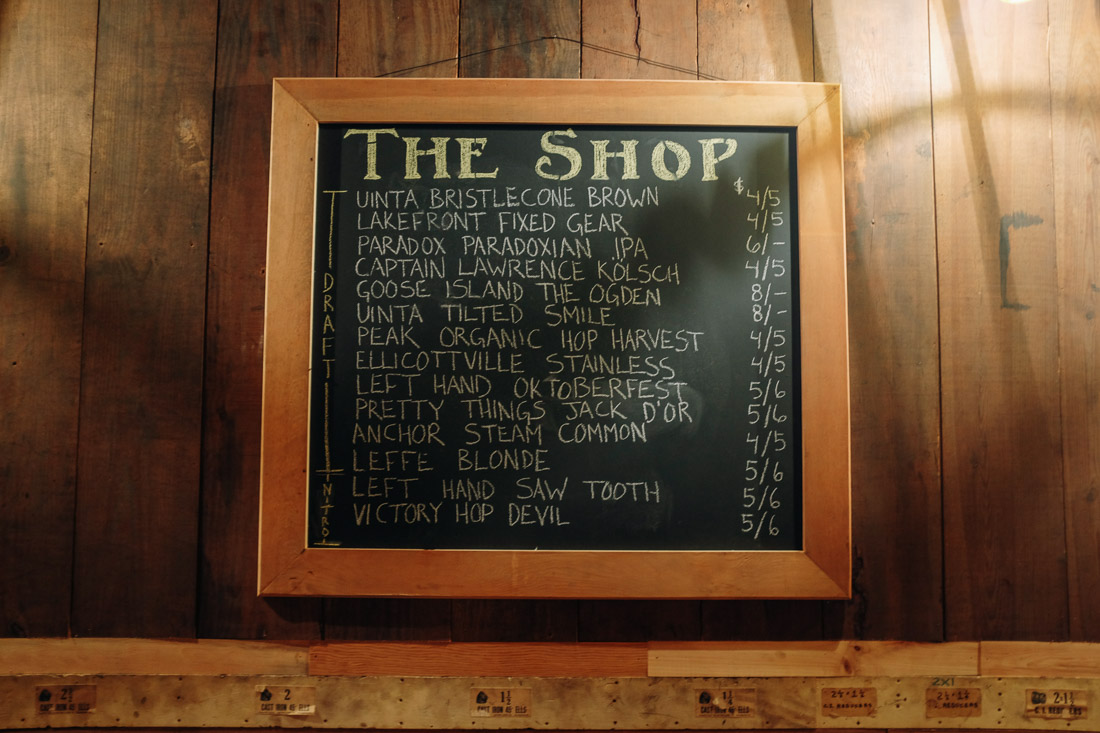 THE SHOP
$
UINTA BRISTLECONE BROWN 4/5
LAKEFRONT FIXED GEAR 4/5
PARADOX PARADOXIAN IPA 6/-
CAPTAIN LAWRENCE KÖLSCH 4/5
GOOSE ISLAND THE OGDEN 8/-
UINTA TILTED SMILE 8/-
PEAK ORGANIC HOP HARVEST 4/5
ELLICOTTVILLE STAINLESS 4/5
LEFT HAND OKTOBERFEST 5/6
PRETTY THINGS JACK D'OR 5/6
ANCHOR STEAM COMMON 4/5
LEFFE BLONDE 5/6
LEFT HAND SAW TOOTH 5/6
VICTORY HOP DEVIL 5/6
DRAFT
NITRO
2½
CAST IRON 45° ELLS
2
CAST IRON 45° ELLS
1½
CAST IRON 45° ELLS
1¼
CAST IRON 45° ELLS
2XI